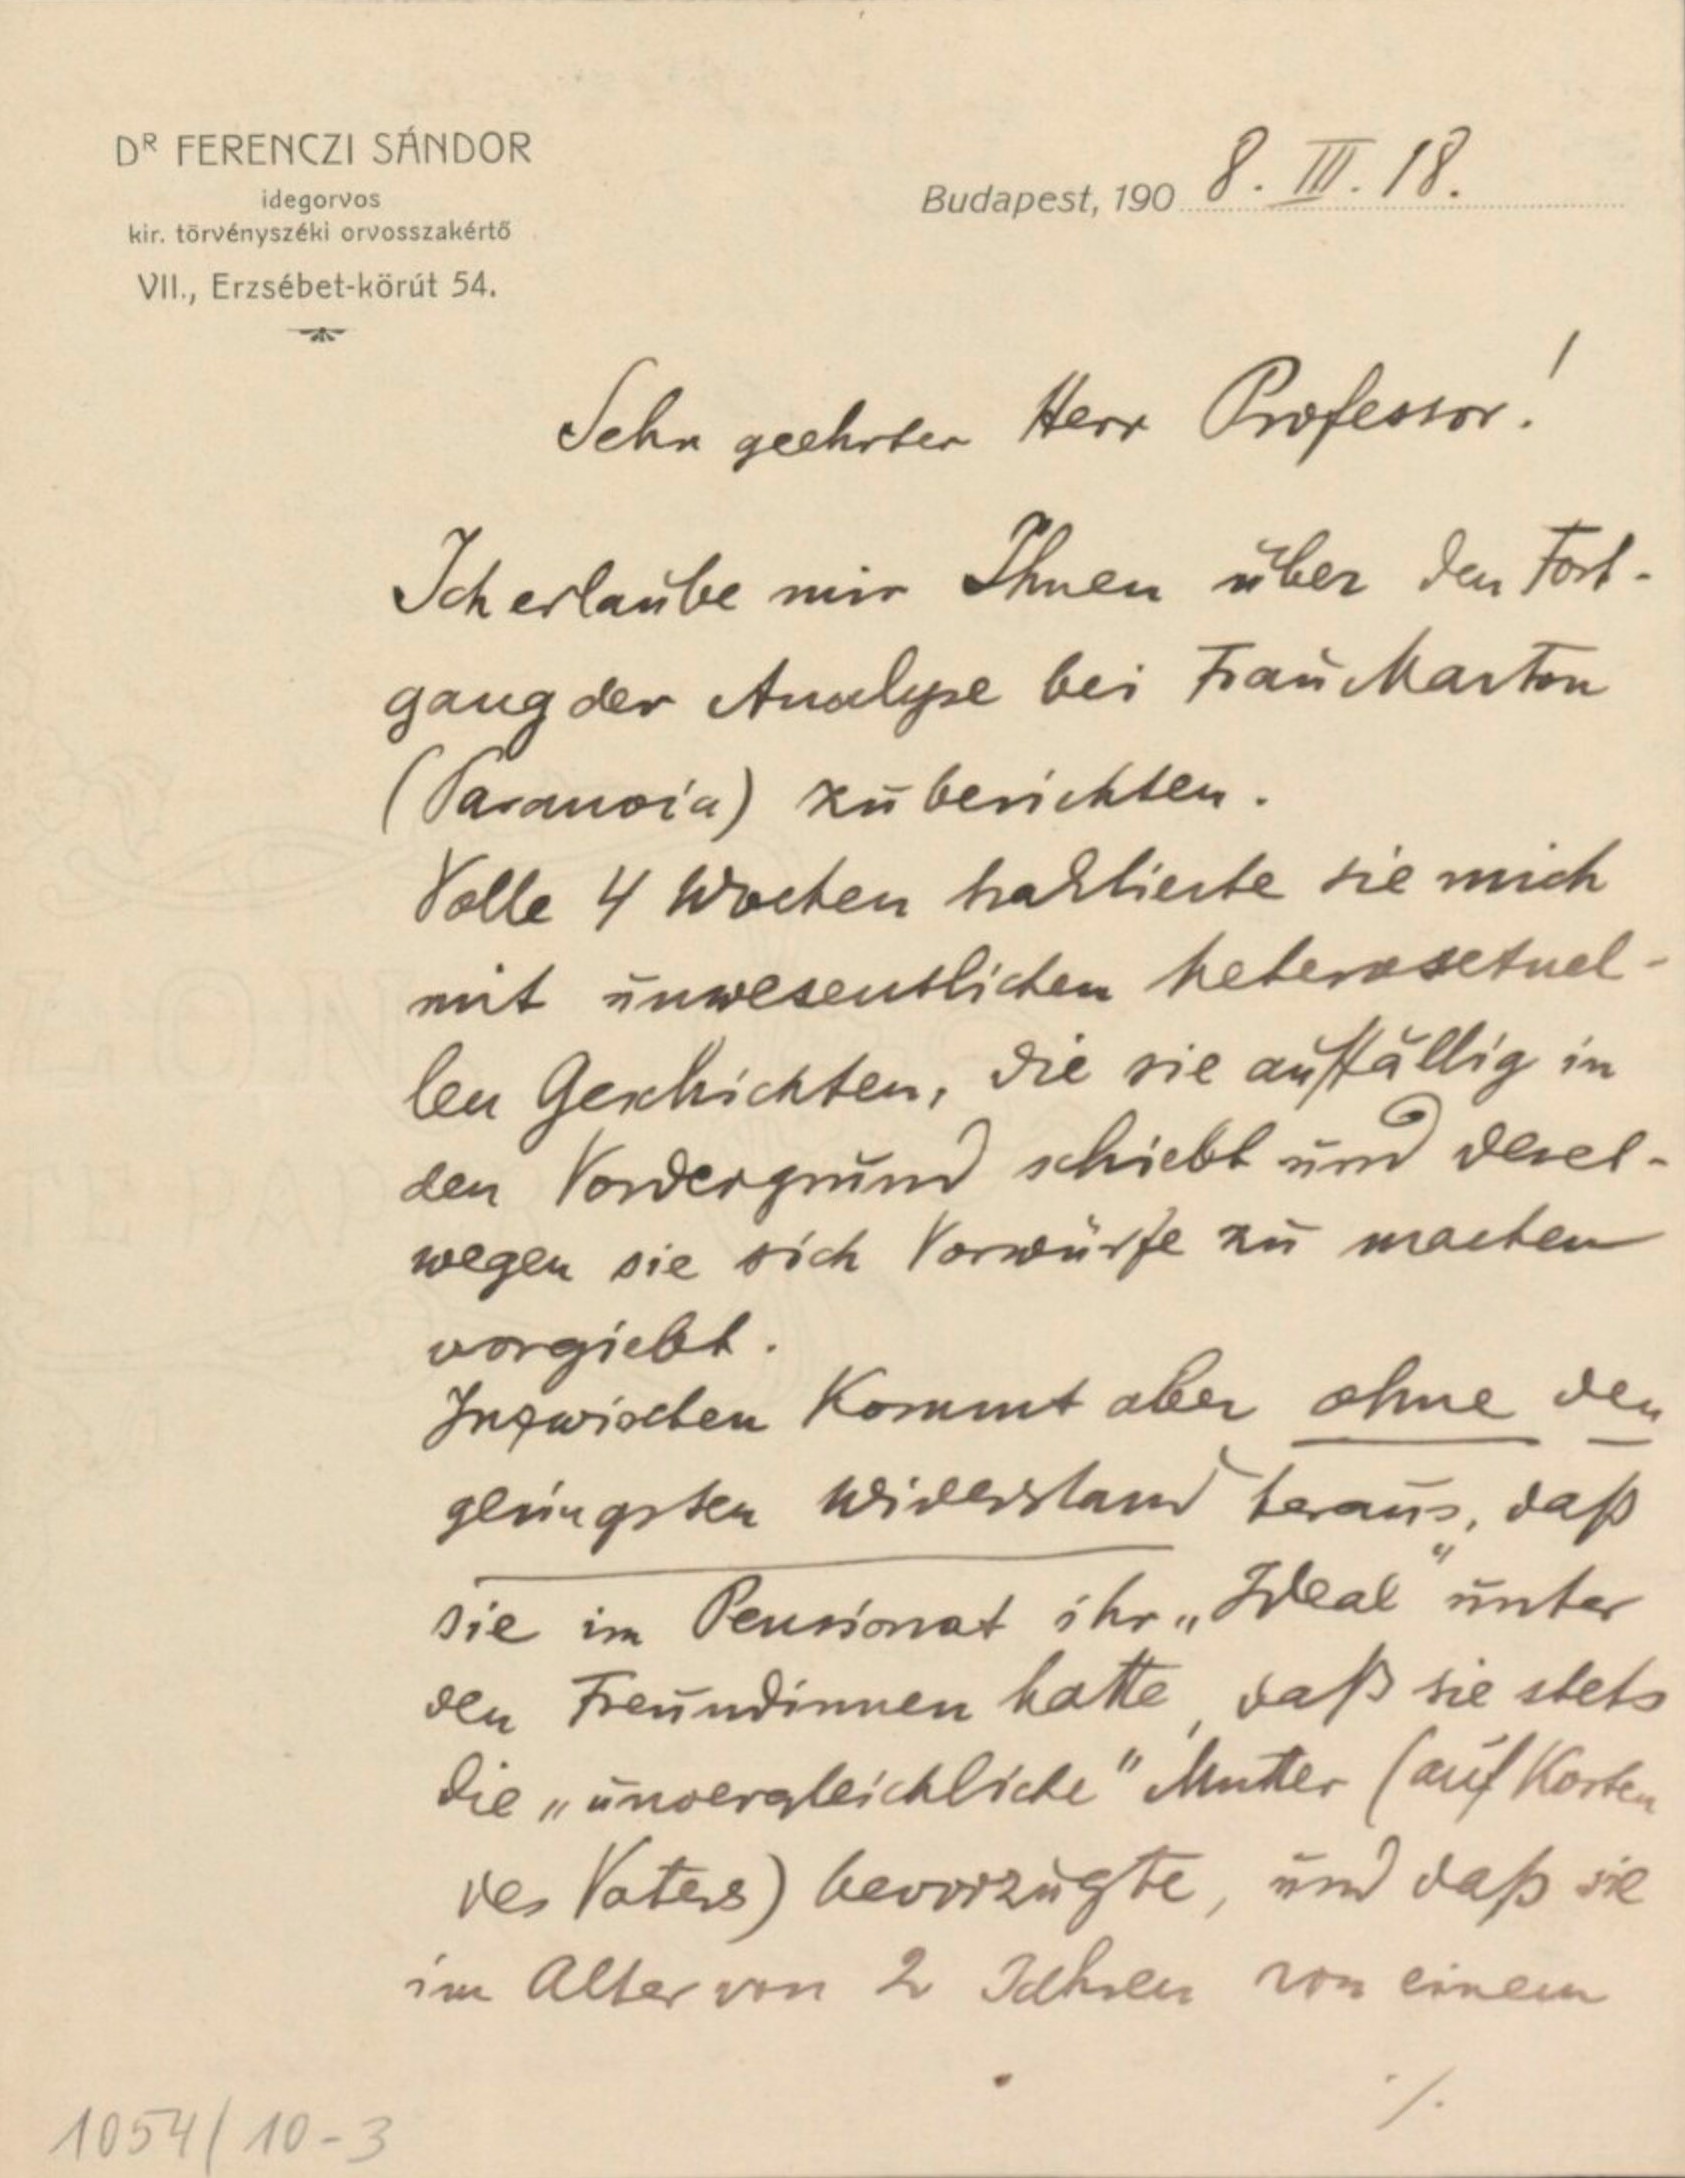 DR FERENCZI SÁNDOR
idegorvos
kir. törvényszéki orvosszakértő
VII., Erzsébet-körút 54.
Budapest, 1908. III. 18.
Sehr geehrter Herr Professor!
Ich erlaube mir Ihnen über den Fort-
gang der Analyse bei Frau Marton
(Paranoia) zu berichten.
Volle 4 Wochen traktierte sie mich
mit unwesentlichen heterosexuel-
len Geschichten, die sie auffällig in
den Vordergrund schiebt und deret-
wegen sie sich Vorwürfe zu machen
vorgiebt.
Inzwischen kommt aber ohne den
geringsten Widerstand heraus, daß
sie im Pensionat ihr „Ideal" unter
den Freundinnen hatte, daß sie stets
die „unvergleichliche" Mutter (auf Kosten
des Vaters) bevorzugte, und daß sie
im Alter von 2 Jahren von einem
./.
1054/10-3